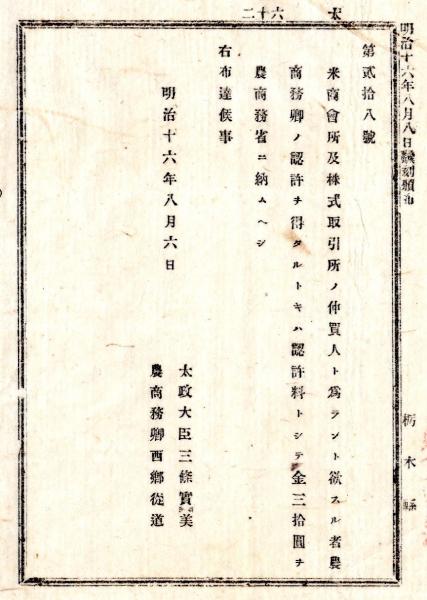 明治十六年八月八日飜刻頒布
栃木縣
太 六十二
第貳拾八號
米商會所及株式取引所ノ仲買人ト爲ラント欲スル者農
商務卿ノ認許ヲ得タルトキハ認許料トシテ金三拾圓ヲ
農商務省ニ納ムヘシ
右布達候事
明治十六年八月六日
太政大臣三條實美
農商務卿西鄕從道